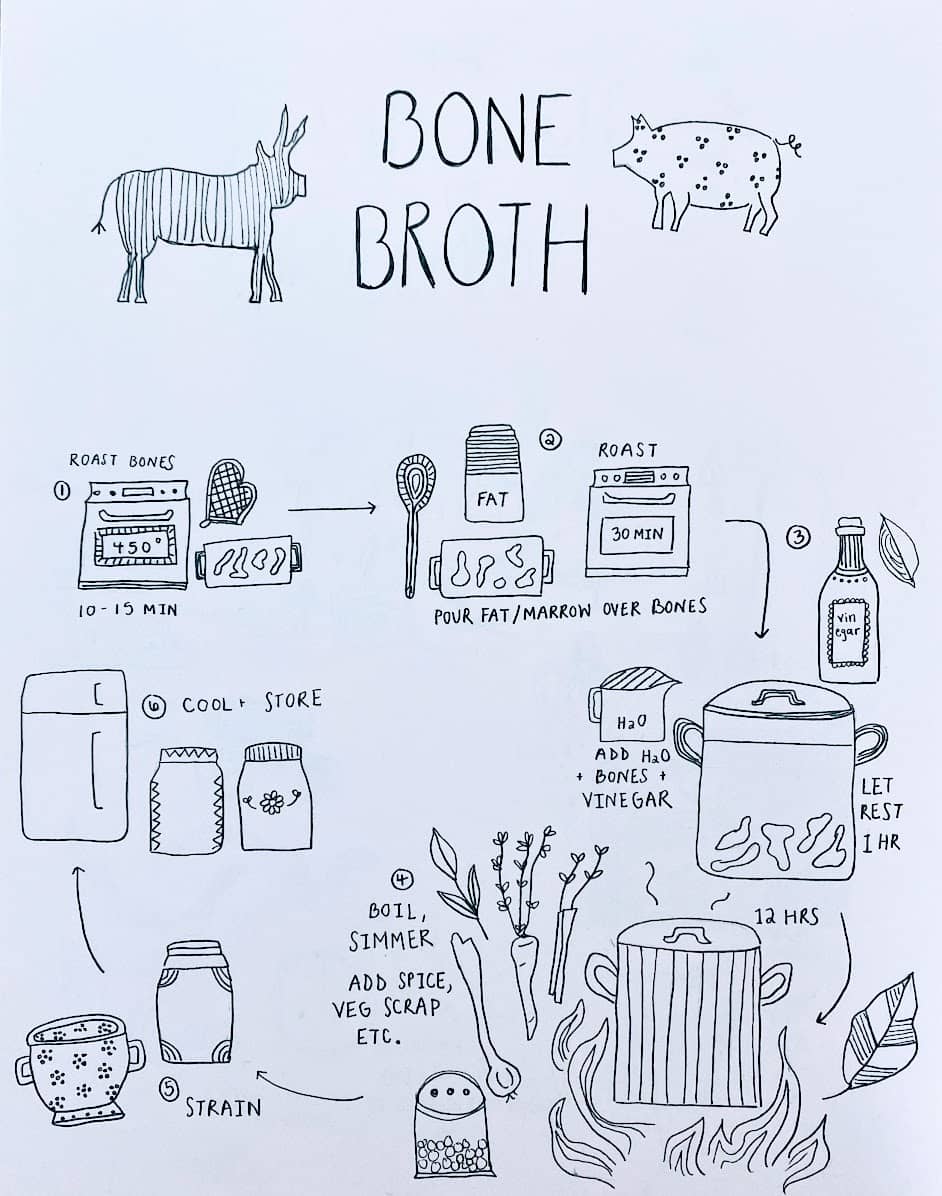 BONE
BROTH
ROAST BONES
1
450°
10-15 MIN
2
FAT
ROAST
30 MIN
POUR FAT/MARROW OVER BONES
3
vin
egar
H2O
ADD H2O
+ BONES +
VINEGAR
LET
REST
1 HR
4
BOIL,
SIMMER
ADD SPICE,
VEG SCRAP
ETC.
12 HRS
5
STRAIN
6
COOL + STORE